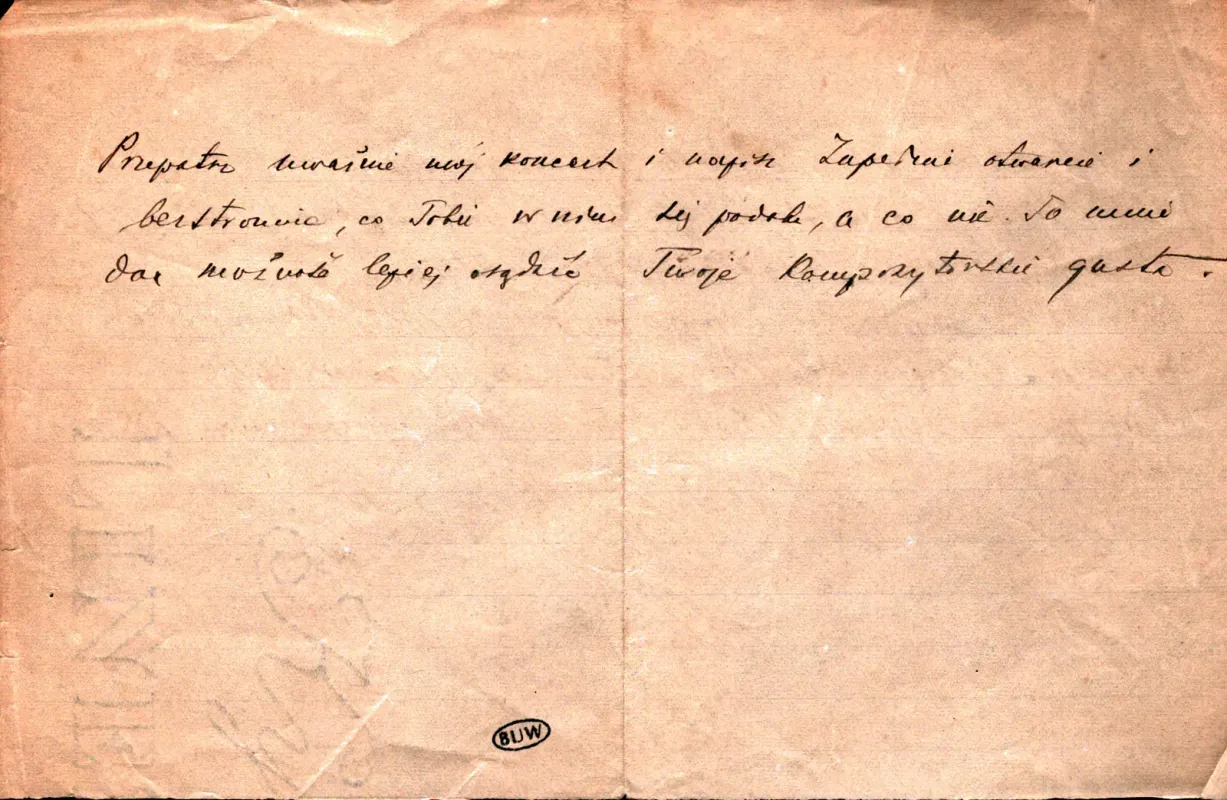 Przepatrz uważnie mój koncert i napisz zupełnie otwarcie i
bezstronnie, co Tobie w nim się podoba, a co nie. To mnie
da możność lepiej osądzić Twoje kompozytorskie gusta.
BUW